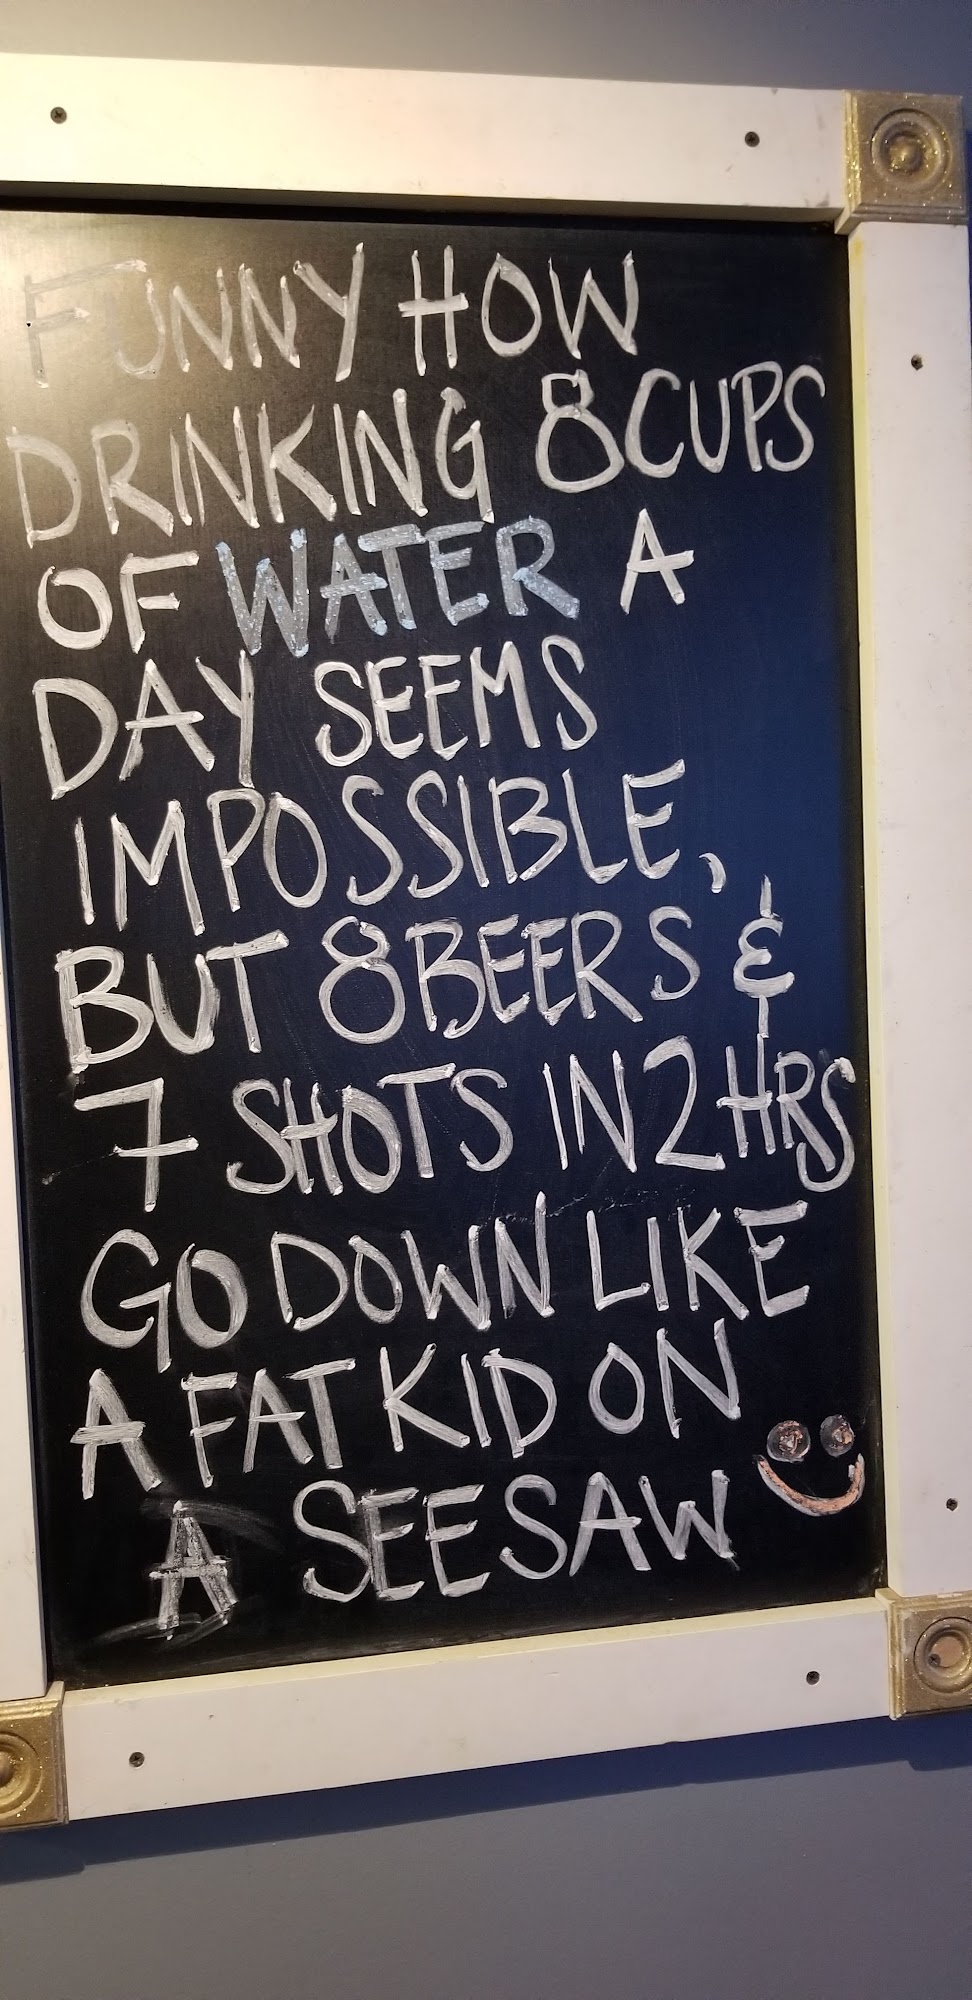 FUNNY HOW
DRINKING 8 CUPS
OF WATER A
DAY SEEMS
IMPOSSIBLE,
BUT 8 BEERS &
7 SHOTS IN 2 HRS
GO DOWN LIKE
A FAT KID ON
A SEESAW